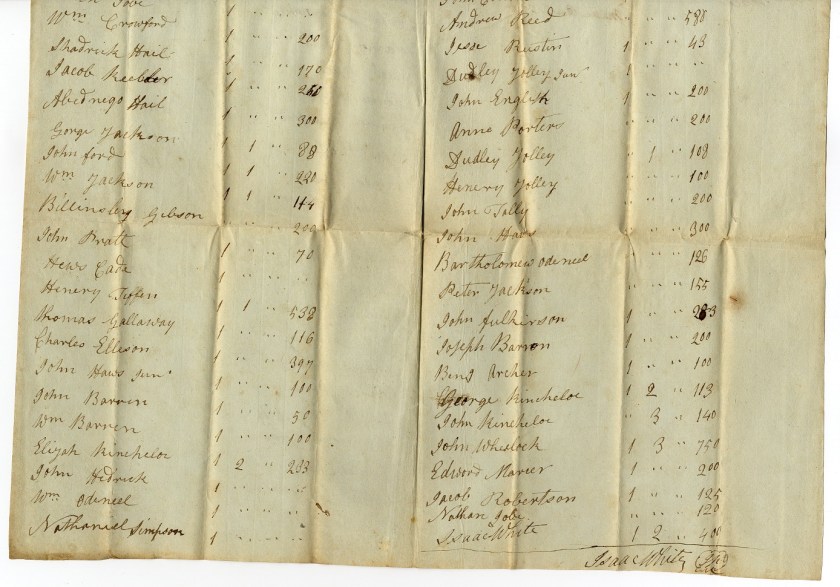 Jobe
Wm Crowford 1 " " 200
Shadrick Hail 1 " " 170
Jacob Keebler 1 " " 260
Abednego Hail " " 300
Gorge Jackson 1 1 " 88
John ford 1 1 " 220
Wm Jackson 1 1 " 144
Billinsley Gibson " " 200
John Pratt 1 " " 70
Hews Cade 1 " " "
Henery Tiffen 1 1 " 538
Thomas Gallaway 1 " " 116
Charles Ellison 1 " " 397
John Haws Junr 1 " " 100
John Barren 1 " " 50
Wm Barren 1 " " 100
Elijah Kincheloe 1 2 " 233
John Hedrick 1 " " "
Wm Odeneel 1 " " "
Nathaniel Simpson 1 " " "
Andrew Reed " " 580
Jesse Rustin 1 " " 43
Dudley Jolley Junr 1 " " "
John English 1 " " 200
Anne Porters " " 200
Dudley Jolley " 1 " 108
Henery Jolley " " 100
John Tally " " 200
John Haws " " 300
Bartholomew odeneel " " 126
Peter Jackson " " 155
John fulkirson 1 " "
Joseph Barron 1 " " 200
Benj Archer 1 " " 100
George Kincheloe 1 2 " 113
John Kincheloe " 3 " 140
John Whelock 1 3 " 750
Edword Mercer 1 " " 200
Jacob Robertson 1 " " 125
Nathan Jobe " " 120
Isaac White 1 2 " 400
Isaac White